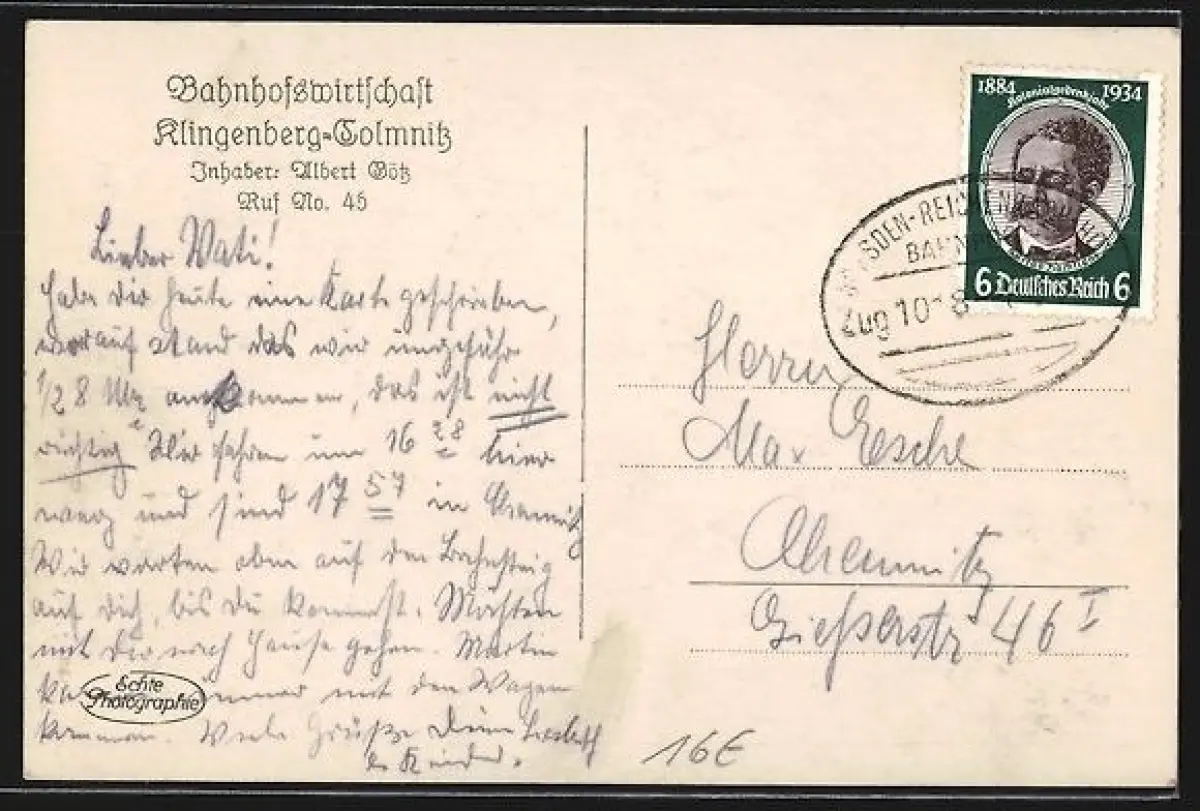 Bahnhofswirtschaft
Klingenberg-Colmnitz
Inhaber: Albert Götz
Ruf No. 45
Lieber Vati!
Habe dir heute eine Karte geschrieben,
worauf stand das wir ungefähr
1/2 8 Uhr ankommen, das ist nicht
richtig. Wir fahren um 16 28 hier
weg und sind 17 57 in Chemnitz
Wir warten oben auf den Bahnsteig
auf dich, bis du kommst. Möchten
mit dir nach Hause gehen. Martin
mit den Wagen
kommen. Viele Grüße Deine
Kinder.
Echte
Photographie
1884 1934
Kolonialgedenkjahr
6 Deutsches Reich 6
Zug 10
Herrn
Max Esche
Chemnitz
Gießerstr 46 I
16€